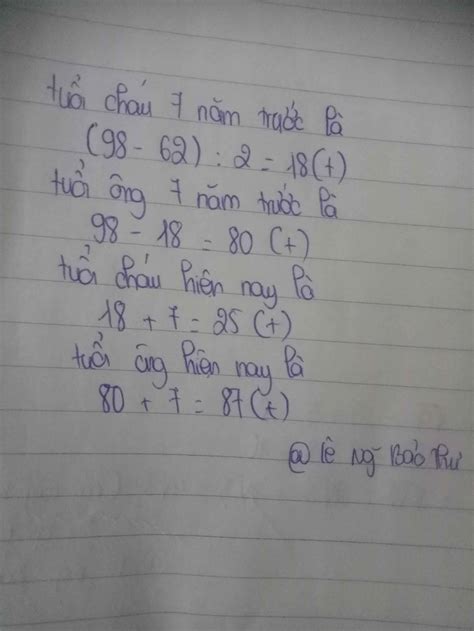 tuổi cháu 7 năm trước là
(98 - 62) : 2 = 18 (t)
tuổi ông 7 năm trước là
98 - 18 = 80 (t)
tuổi cháu hiện nay là
18 + 7 = 25 (t)
tuổi ông hiện nay là
80 + 7 = 87 (t)
@ lê ng̃ Bảo Thư